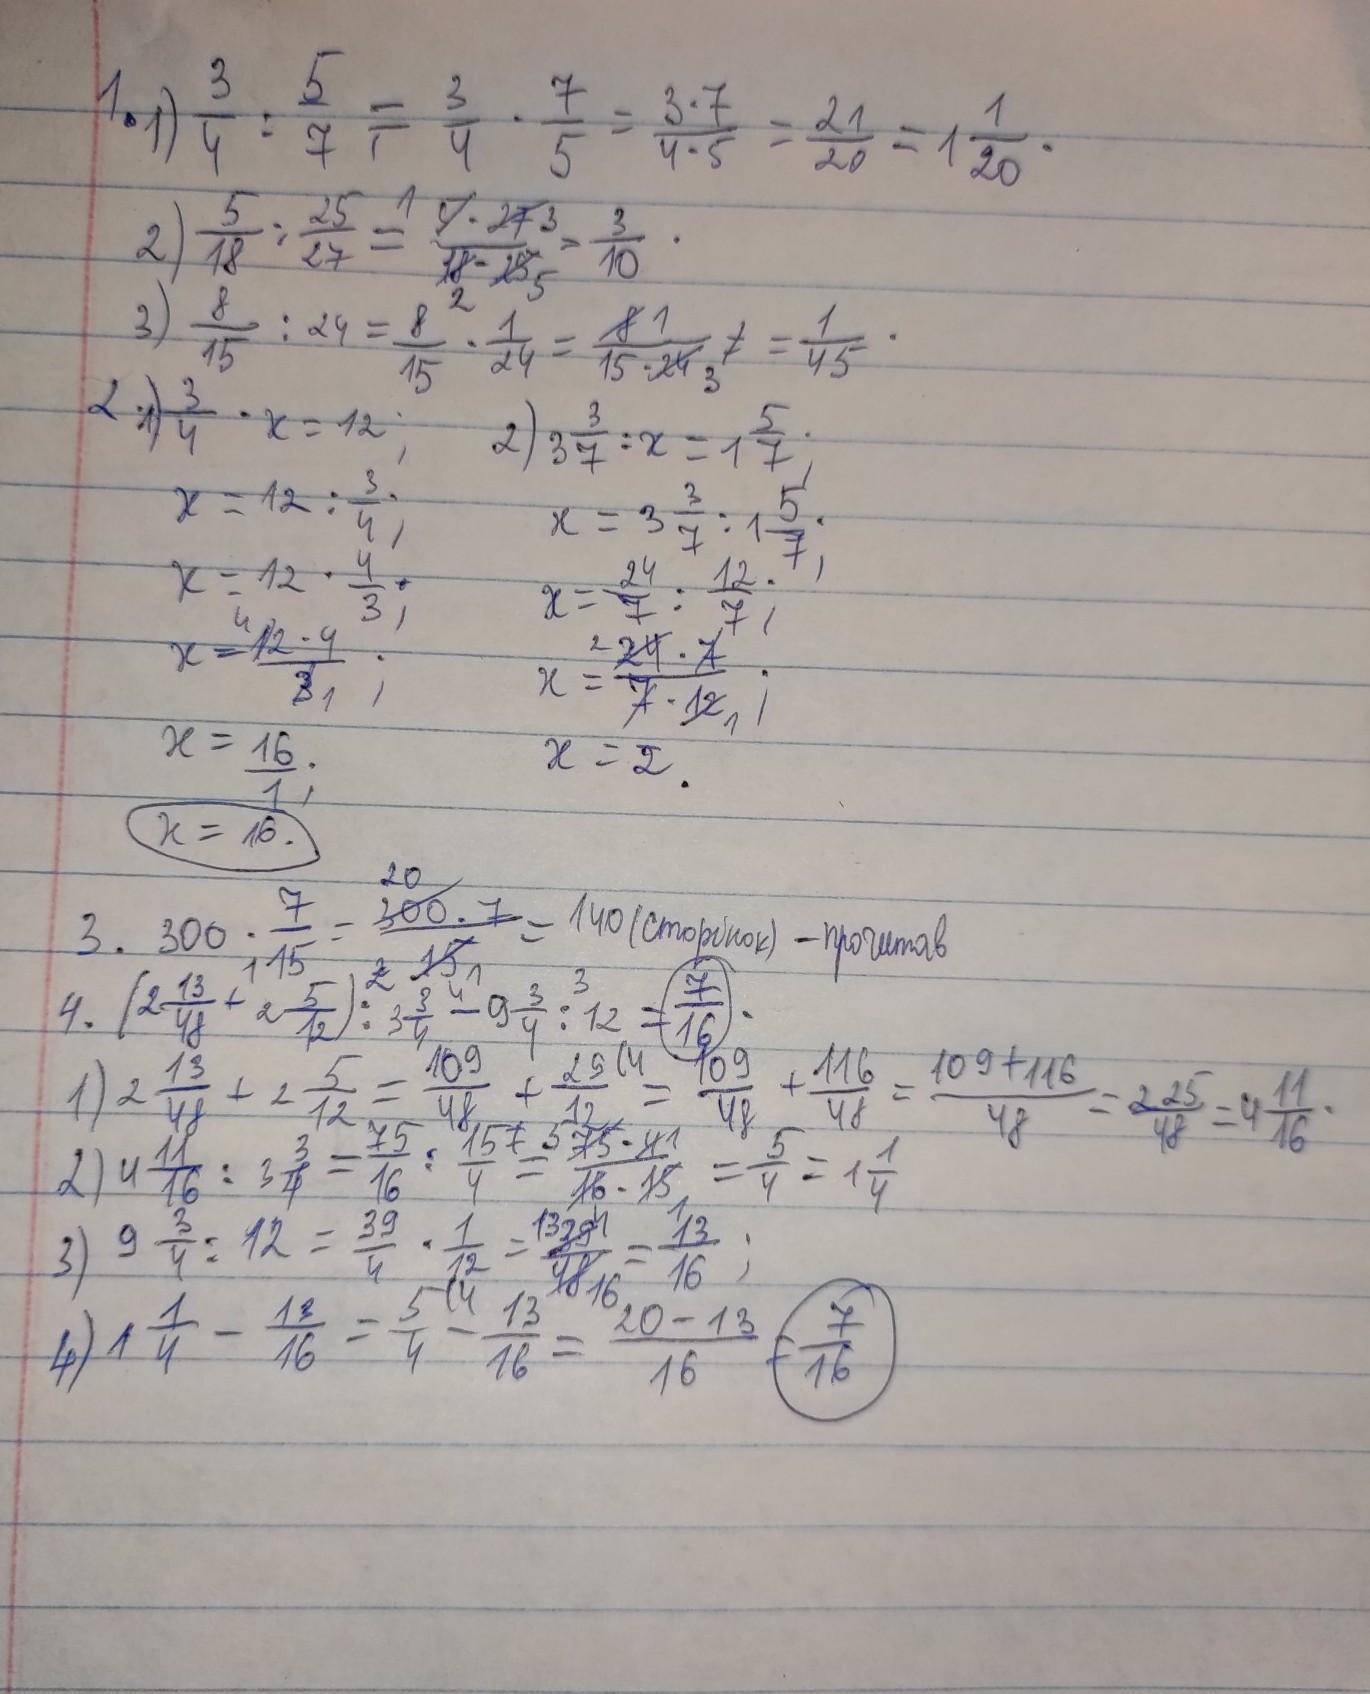 1. 1) 3/4 : 5/7 = 3/4 · 7/5 = 3·7/4·5 = 21/20 = 1 1/20.
2) 5/18 : 25/27 = 1 5·27 3/18·25 2 5 = 3/10.
3) 8/15 : 24 = 8/15 · 1/24 = 8 1/15·24 3 = 1/45.
2. 1) 3/4 · x = 12; 2) 3 3/7 : x = 1 5/7;
x = 12 : 3/4; x = 3 3/7 : 1 5/7;
x = 12 · 4/3; x = 24/7 : 12/7;
x = 4 12·4/3 1; x = 2 24·7/7·12 1;
x = 16/1; x = 2.
x = 16.
3. 300 · 7/15 = 20 300·7/15 1 = 140 (сторінок) – прочитав
4. (2 13/48 + 1 2 5/12) : 2 3 3/4 4 – 9 3/4 : 3 12 = 7/16.
1) 2 13/48 + 2 5/12 = 109/48 + 29/12 (4 = 109/48 + 116/48 = 109+116/48 = 225/48 = 4 11/16.
2) 4 11/16 : 3 3/4 = 75/16 : 15/4 = 5 75·4 1/16·15 1 = 5/4 = 1 1/4
3) 9 3/4 : 12 = 39/4 · 1/12 = 13 39/48 16 = 13/16;
4) 1 1/4 – 13/16 = 5/4 (4 – 13/16 = 20–13/16 = 7/16